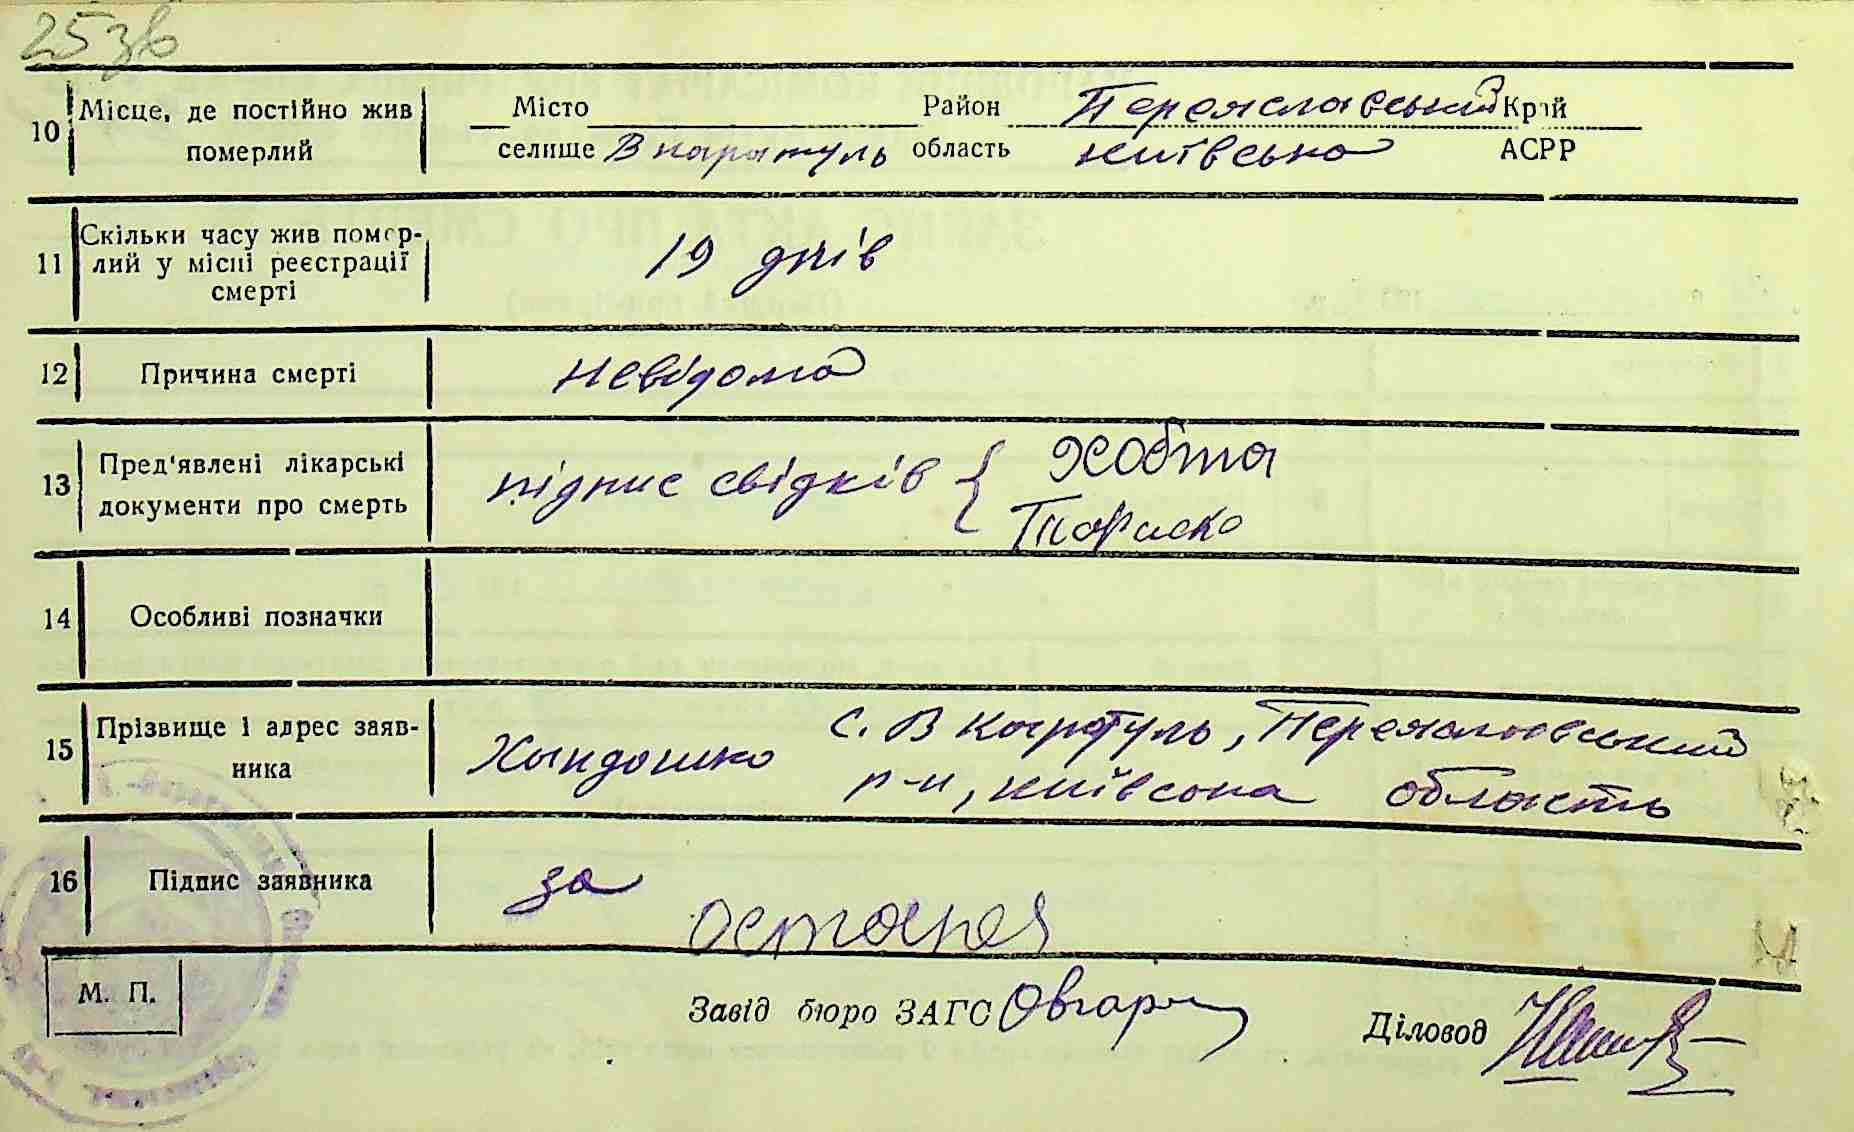 25зв
10 Місце, де постійно жив Місто Район Переяславський Край
померлий селище В каратуль область київська АСРР
11 Скільки часу жив помер-
лий у місці реєстрації 19 днів
смерті
12 Причина смерті невідома
13 Пред'явлені лікарські
документи про смерть підпис свідків { Жовта
Тараско
14 Особливі позначки
15 Прізвище і адрес заяв-
ника Хандошко с. В Каратуль, Переяславський
р-н, київська область
16 Підпис заявника за
М. П.
Завід бюро ЗАГС Діловод